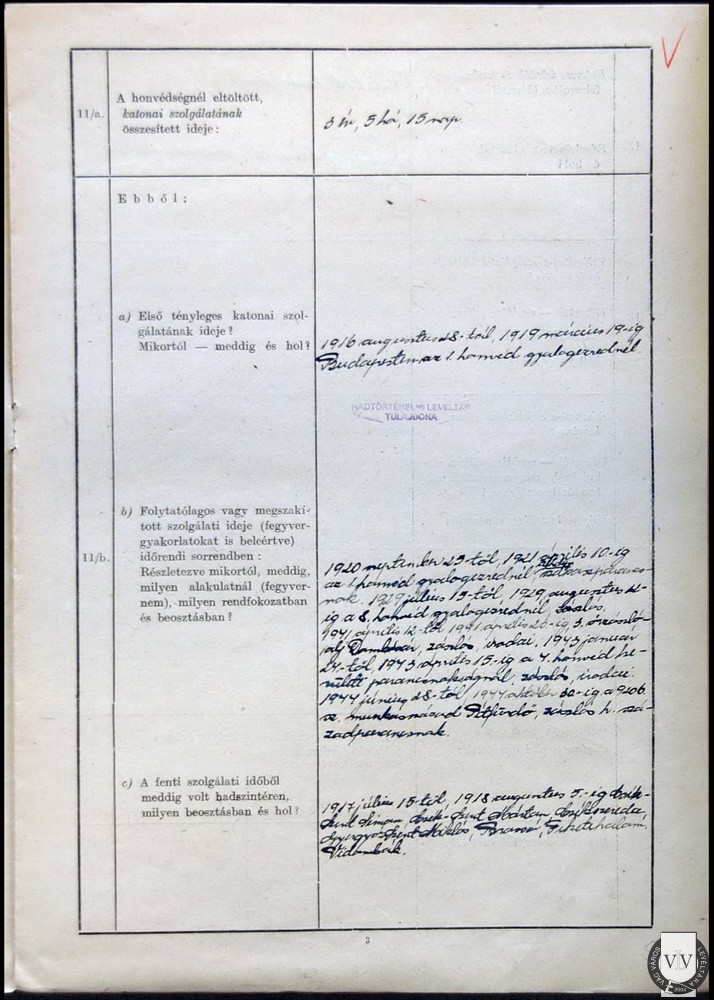 11/a.
A honvédségnél eltöltött,
katonai szolgálatának
összesített ideje:
3 év, 5 hó, 15 nap.
Ebből:
a) Első tényleges katonai szol-
gálatának ideje?
Mikortól — meddig és hol?
1916 augusztus 28-tól, 1919 március 19-ig
Budapesten az 1. honvéd gyalogezrednél.
HADTÖRTÉNELMI LEVÉLTÁR
TULAJDONA
11/b.
b) Folytatólagos vagy megszakí-
tott szolgálati ideje (fegyver-
gyakorlatokat is beleértve)
időrendi sorrendben:
Részletezve mikortól, meddig,
milyen alakulatnál (fegyver-
nem), milyen rendfokozatban
és beosztásban?
1920 szeptember 23-tól, 1921 április 10-ig
az 1. honvéd gyalogezrednél, szakaszparancs-
nok. 1929 július 19-től, 1929 augusztus 12-
ig a 8. honvéd gyalogezrednél, zászlós.
1941 április 12-től 1941 április 28-ig 3. őrzászló-
alj Dombóvár, zászlós, irodai, 1943 január
24-től, 1943 április 15-ig a 4. honvéd ke-
rületi parancsnokságnál, zászlós, irodai.
1944 június 28-tól 1944 október 30-ig a 9206
sz. munkásszázad Pétfürdő, zászlós h. szá-
zadparancsnok.
c) A fenti szolgálati időből
meddig volt hadszintéren,
milyen beosztásban és hol?
1917 július 15-től, 1918 augusztus 5-ig Csik-
Szent Simon, Csik-Szent Márton, Csikszereda,
Gyergyószent Miklós, Brassó, Feketehalom,
Vidombák.
3
VÁC VÁROS LEVÉLTÁRA